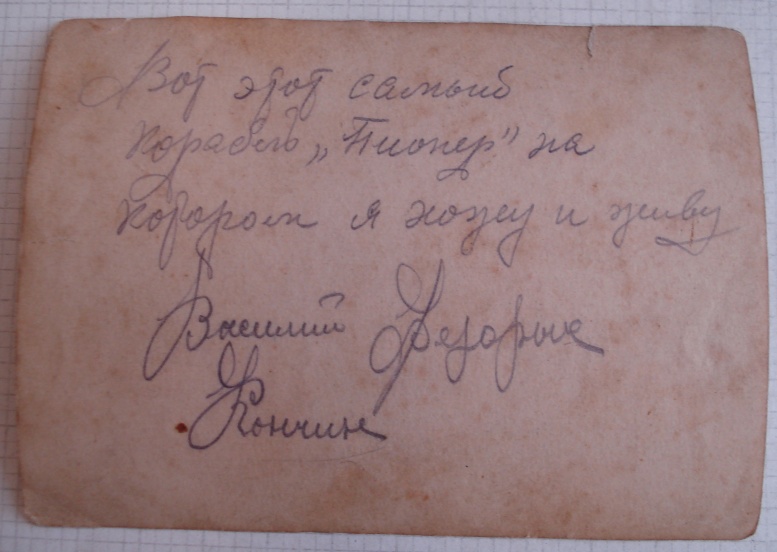 Вот этот самый
корабль „Пионер" на
котором я хожу и живу
Василий
Кончин